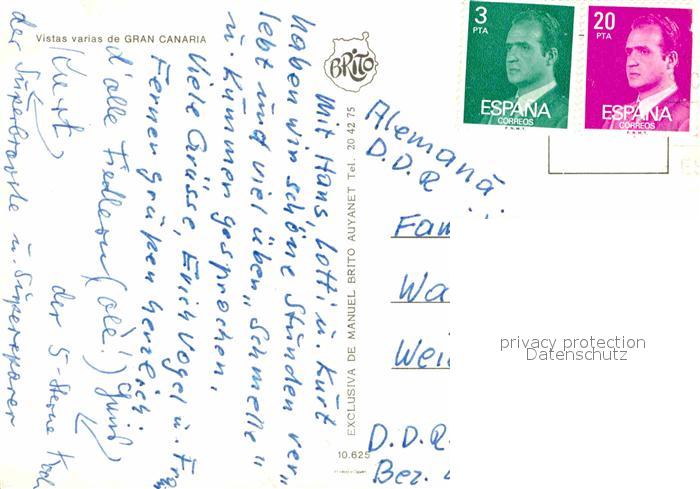 Vistas varias de GRAN CANARIA
BRITO
Mit Hans, Lotti u. Kurt
haben wir schöne Stunden ver„
lebt und viel über „Schmelle"
u. Kummer gesprochen.
Viele Grüsse, Erich Vogel u. Fr
Ferner grüßen herzlich:
d'alle Fiedlern (olé!)
(Kurt) der 5-Sterne Koch
der Superbravste u. Supersparer
EXCLUSIVA DE MANUEL BRITO AUYANET Tel. 20 42 75
10.625
3
PTA
ESPAÑA
CORREOS
F.N.M.T.
20
PTA
ESPAÑA
CORREOS
F.N.M.T.
Alemaná
D.D.R
Fam
Wa
Wei
D.D.R.
Bez.
privacy protection
Datenschutz